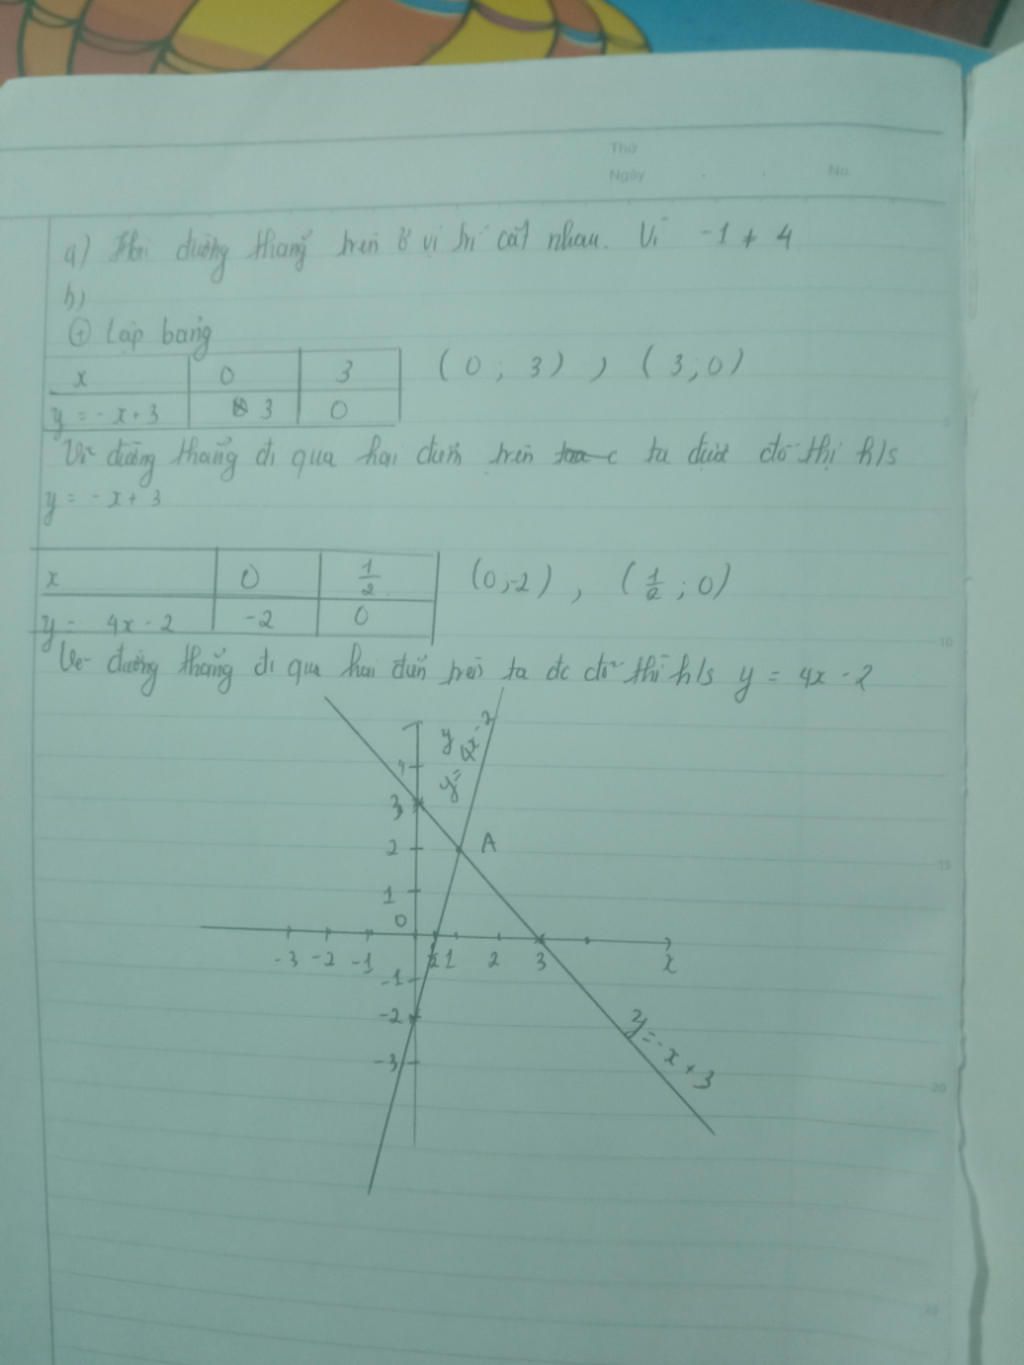 Thứ
Ngày No.
a) Hai đường thẳng trên ở vị trí cắt nhau. Vì -1 ≠ 4
b)
+ Lập bảng
x 0 3 (0; 3), (3; 0)
y = -x+3 3 0
Vẽ đường thẳng đi qua hai điểm trên ta được đồ thị h/s
y = -x+3
x 0 1/2 (0;-2), (1/2; 0)
y = 4x-2 -2 0
Vẽ đường thẳng đi qua hai điểm trên ta đc đồ thị h/s y = 4x-2
y
y=4x-2
4
3
2 A
1
0
-3 -2 -1 1/2 1 2 3 x
-1
-2
-3
y=-x+3
5
10
15
20